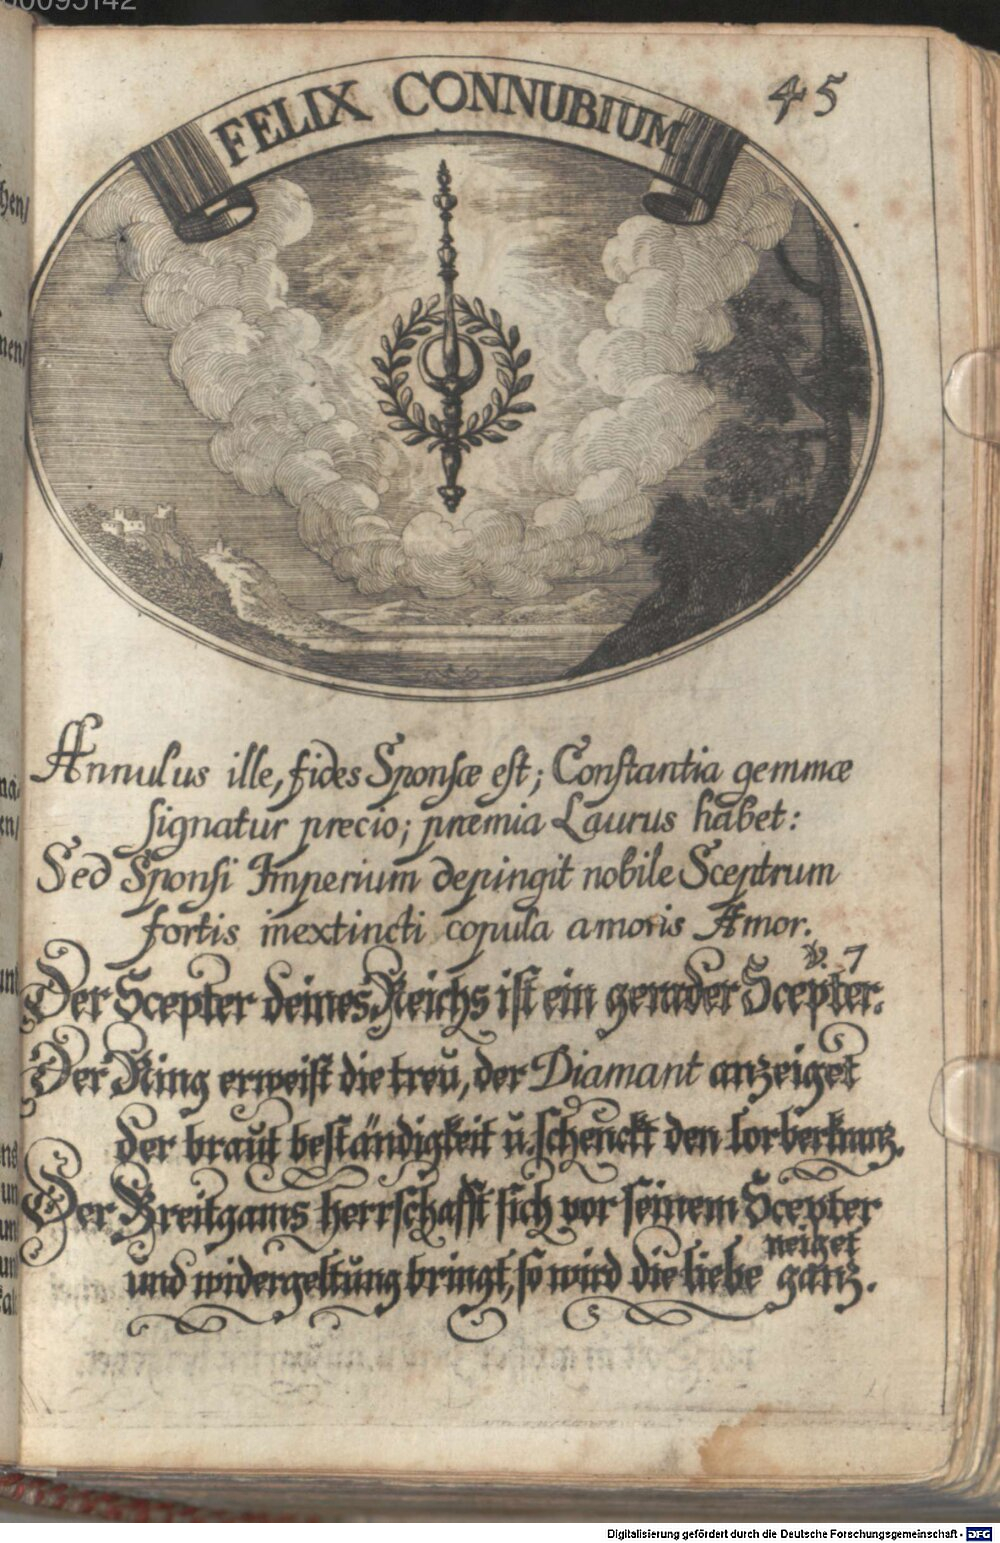 FELIX CONNUBIUM
45
Annulus ille, fides Sponsæ est; Constantia gemmæ
signatur precio; præmia Laurus habet:
Sed Sponsi Imperium depingit nobile Sceptrum
fortis inextincti copula amoris Amor.
v. 7
Der Scepter deines Reichs ist ein gerader Scepter.
Der Ring erweist die treu, der Diamant anzeiget
der braut beständigkeit u. schenckt den lorberkranz.
Der Breitgams herrschafft sich vor seinem Scepter
neiget
und widergeltung bringt, so wird die liebe ganz.
Digitalisierung gefördert durch die Deutsche Forschungsgemeinschaft - DFG